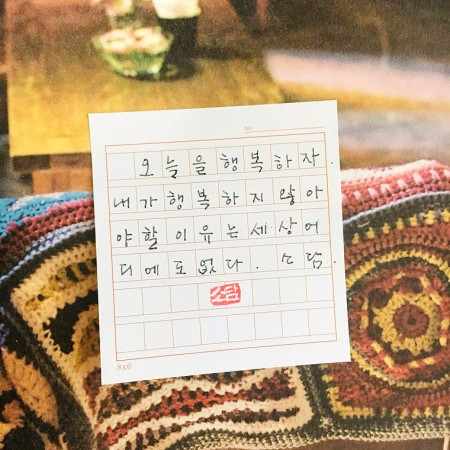 오늘을 행복하자.
내가 행복하지 않아
야 할 이유는 세상 어
디에도 없다. 소담.
소담
8x6